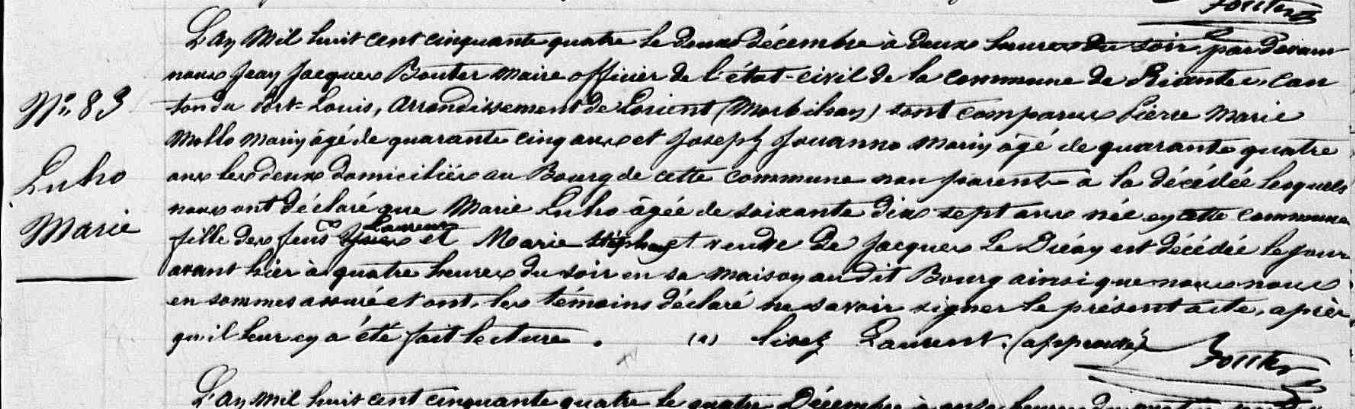 N° 83
Luho
Marie
L'an mil huit cent cinquante quatre le deux décembre à deux heures du soir, par devant
nous Jean Jacques Bouter maire officier de l'état-civil de la commune de Riantec, can
ton du Port-Louis, arrondissement de Lorient (Morbihan) sont comparus Pierre Marie
Mollo marin âgé de quarante cinq ans et Joseph Jouanno marin âgé de quarante quatre
ans les deux domiciliés au Bourg de cette commune non parents à la décédée lesquels
nous ont déclaré que Marie Luho âgée de soixante dix sept ans née en cette commune
fille des feus Laurent et Marie Stéphan et veuve de Jacques Le Diéay est décédée le jour
avant hier à quatre heures du soir en sa maison au dit Bourg ainsi que nous nous
en sommes assuré et ont, les témoins déclaré ne savoir signer le présent acte, après
qu'il leur en a été fait lecture. (1) lisez Laurent. (approuvé)
L'an mil huit cent cinquante quatre le quatre Décembre à